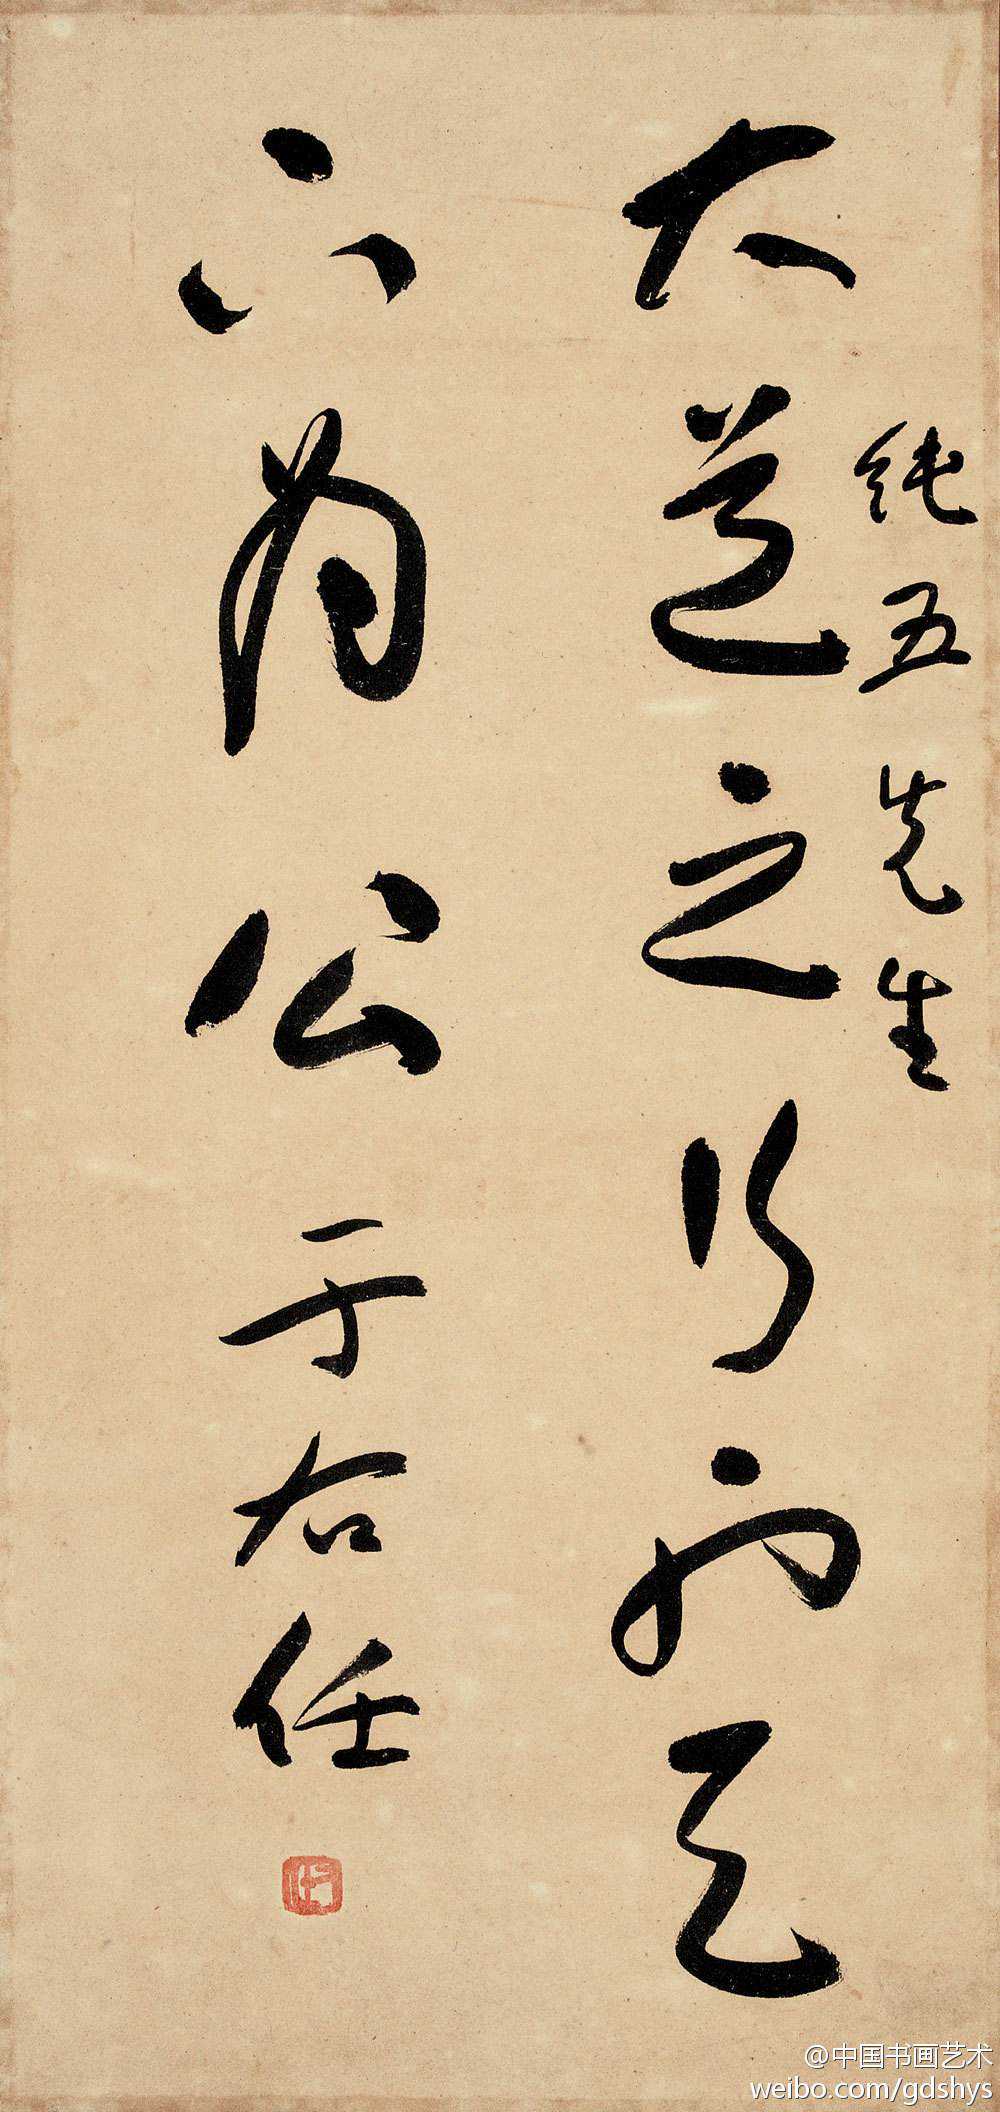 純五先生
大道之行也天
下為公 于右任
@中国书画艺术
weibo.com/gdshys